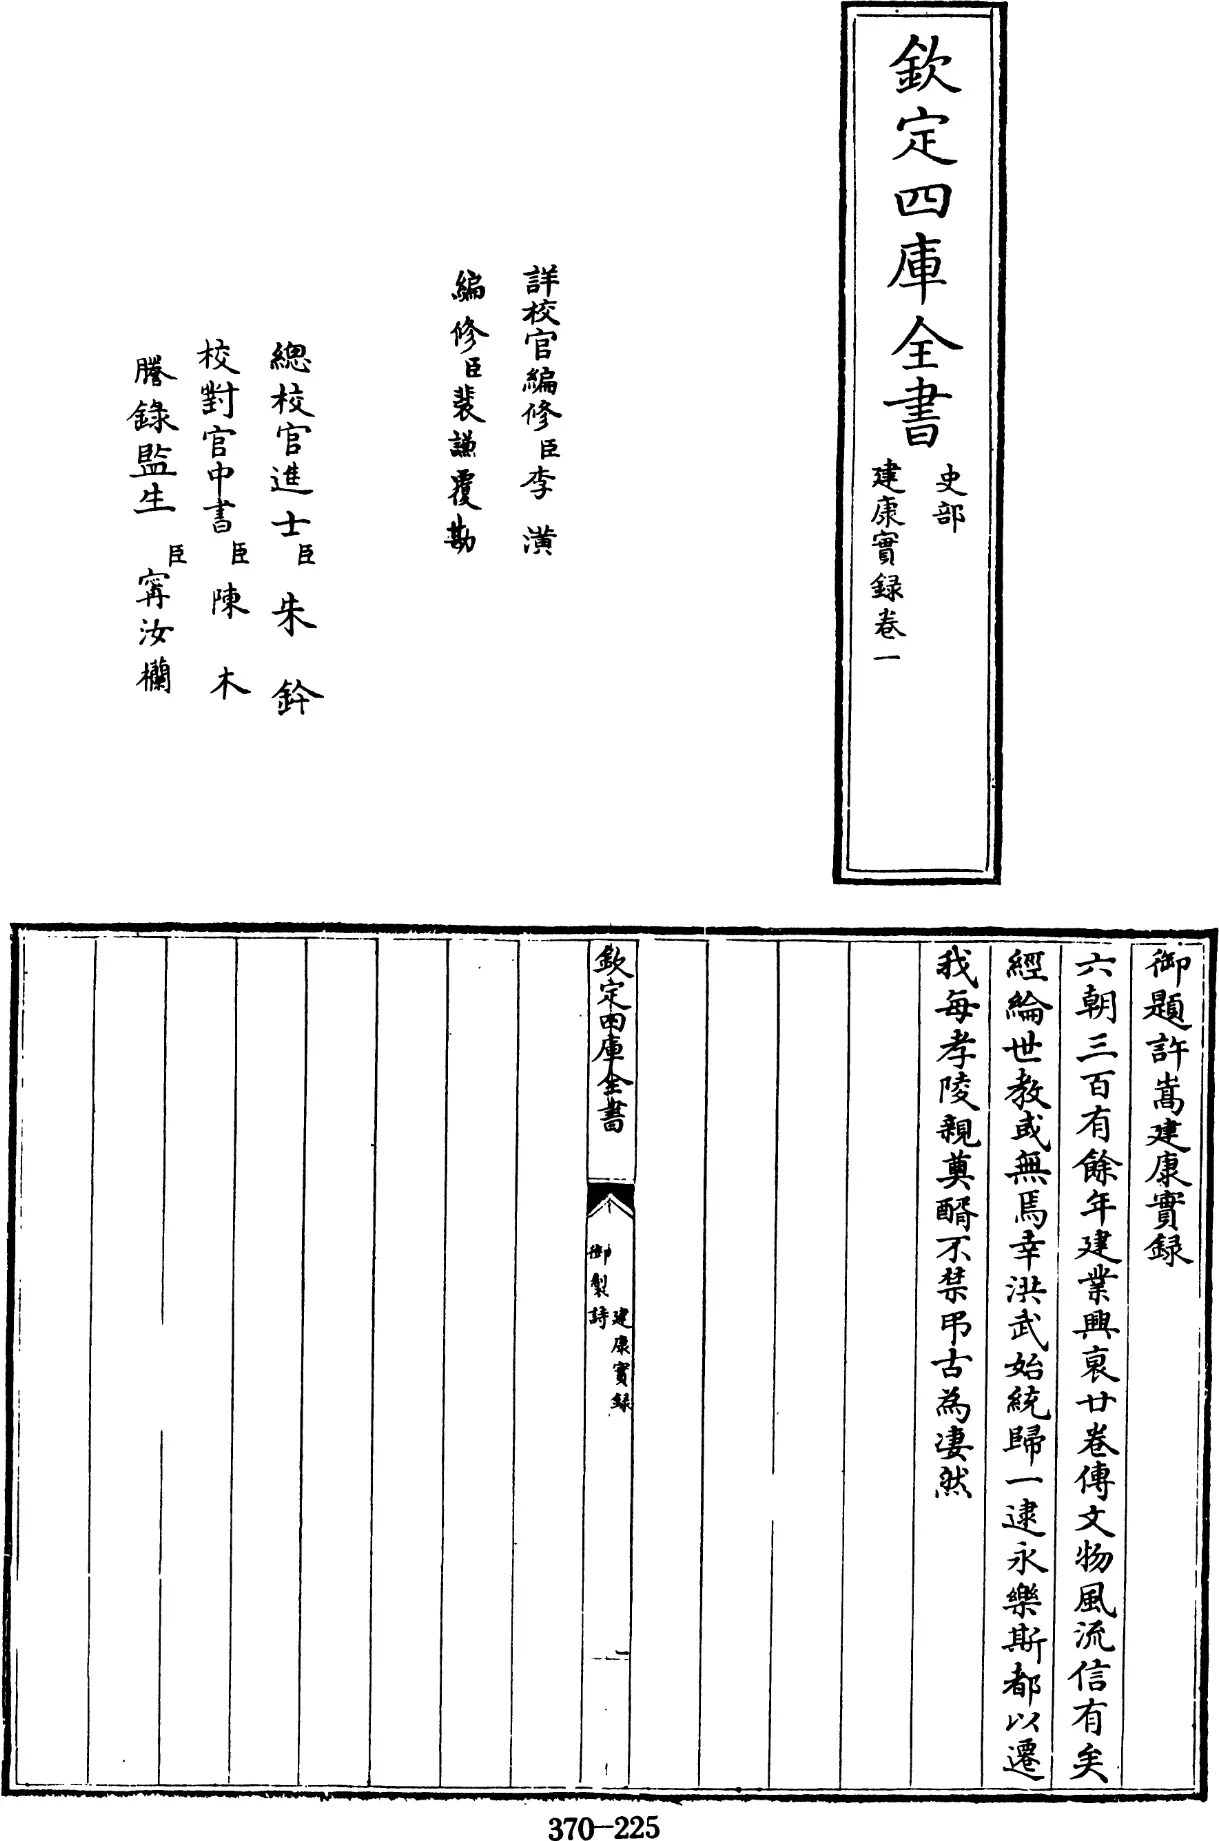 欽定四庫全書
史部
建康實録卷一
詳校官編修臣李潢
編修臣裴謙覆勘
總校官進士臣朱鈐
校對官中書臣陳木
謄錄監生臣甯汝欄
御題許嵩建康實録
六朝三百有餘年建業興衰廿卷傳文物風流信有矣
經綸世教或無焉幸洪武始統歸一逮永樂斯都以遷
我每孝陵親奠酹不禁弔古為凄然
欽定四庫全書
建康實録
御製詩
一
370-225